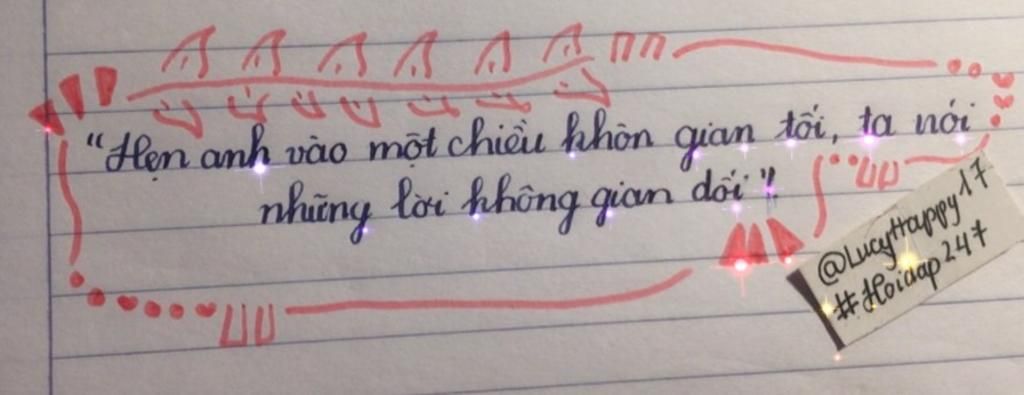 "Hẹn anh vào một chiều khôn gian tối, ta nói
những lời không gian dối"
@LucyHappy17
#Hoidap247